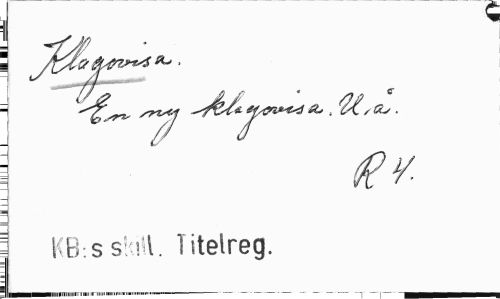 Klagovisa.
En ny klagovisa. U.å.
R 4.
KB:s skill. Titelreg.